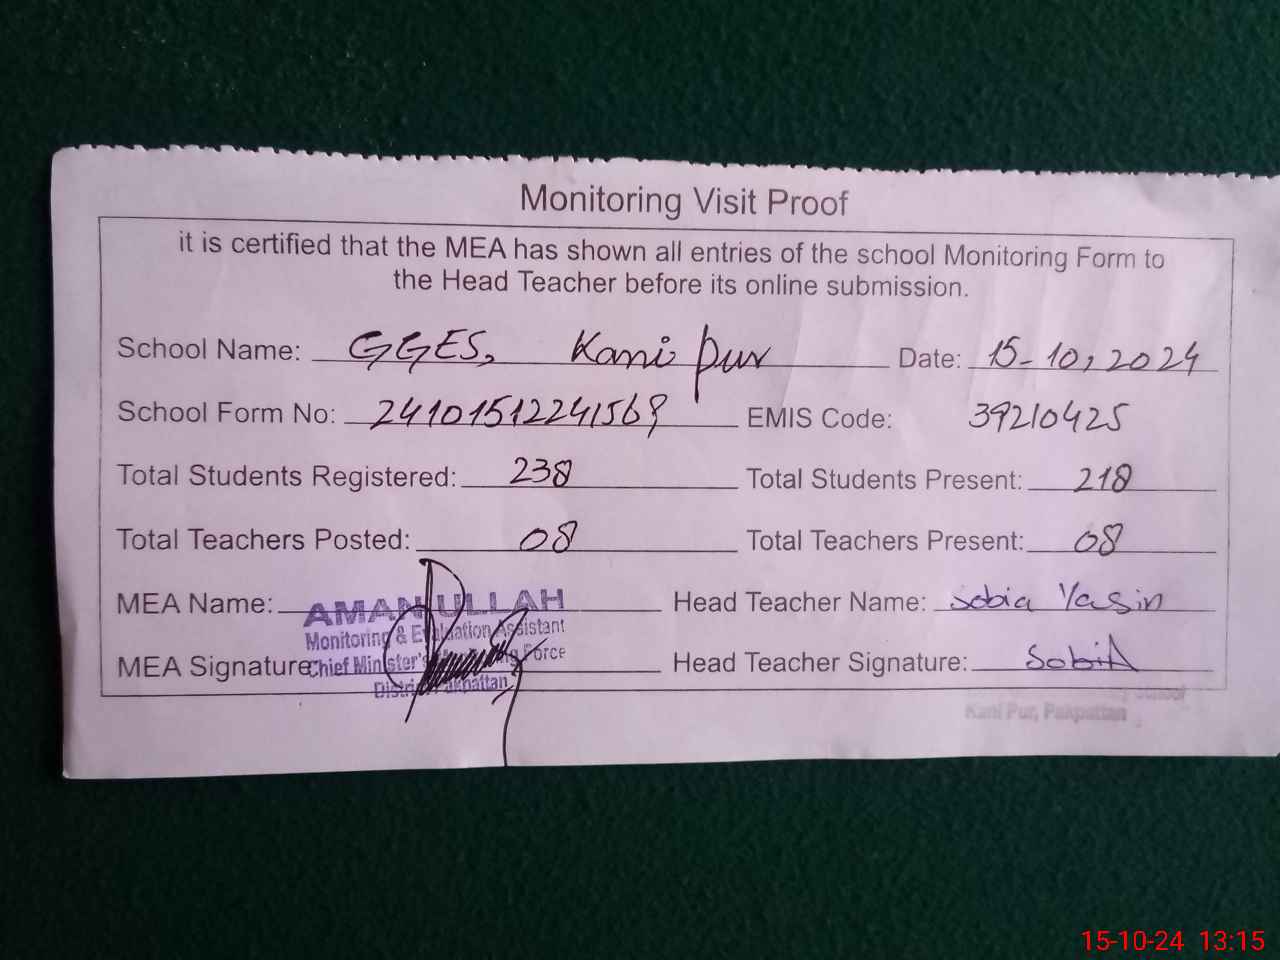 Monitoring Visit Proof
it is certified that the MEA has shown all entries of the school Monitoring Form to
the Head Teacher before its online submission.
School Name: GGES, Kani pur Date: 15-10,2024
School Form No: 241015122241569 EMIS Code: 39210425
Total Students Registered: 238 Total Students Present: 218
Total Teachers Posted: 08 Total Teachers Present: 08
MEA Name: AMAN ULLAH Head Teacher Name: Sobia Yasin
Monitoring & Evaluation Assistant
MEA Signature: Chief Minister's Monitoring Force Head Teacher Signature: Sobia
District Pakpattan
School
Kani Pur, Pakpattan
15-10-24 13:15